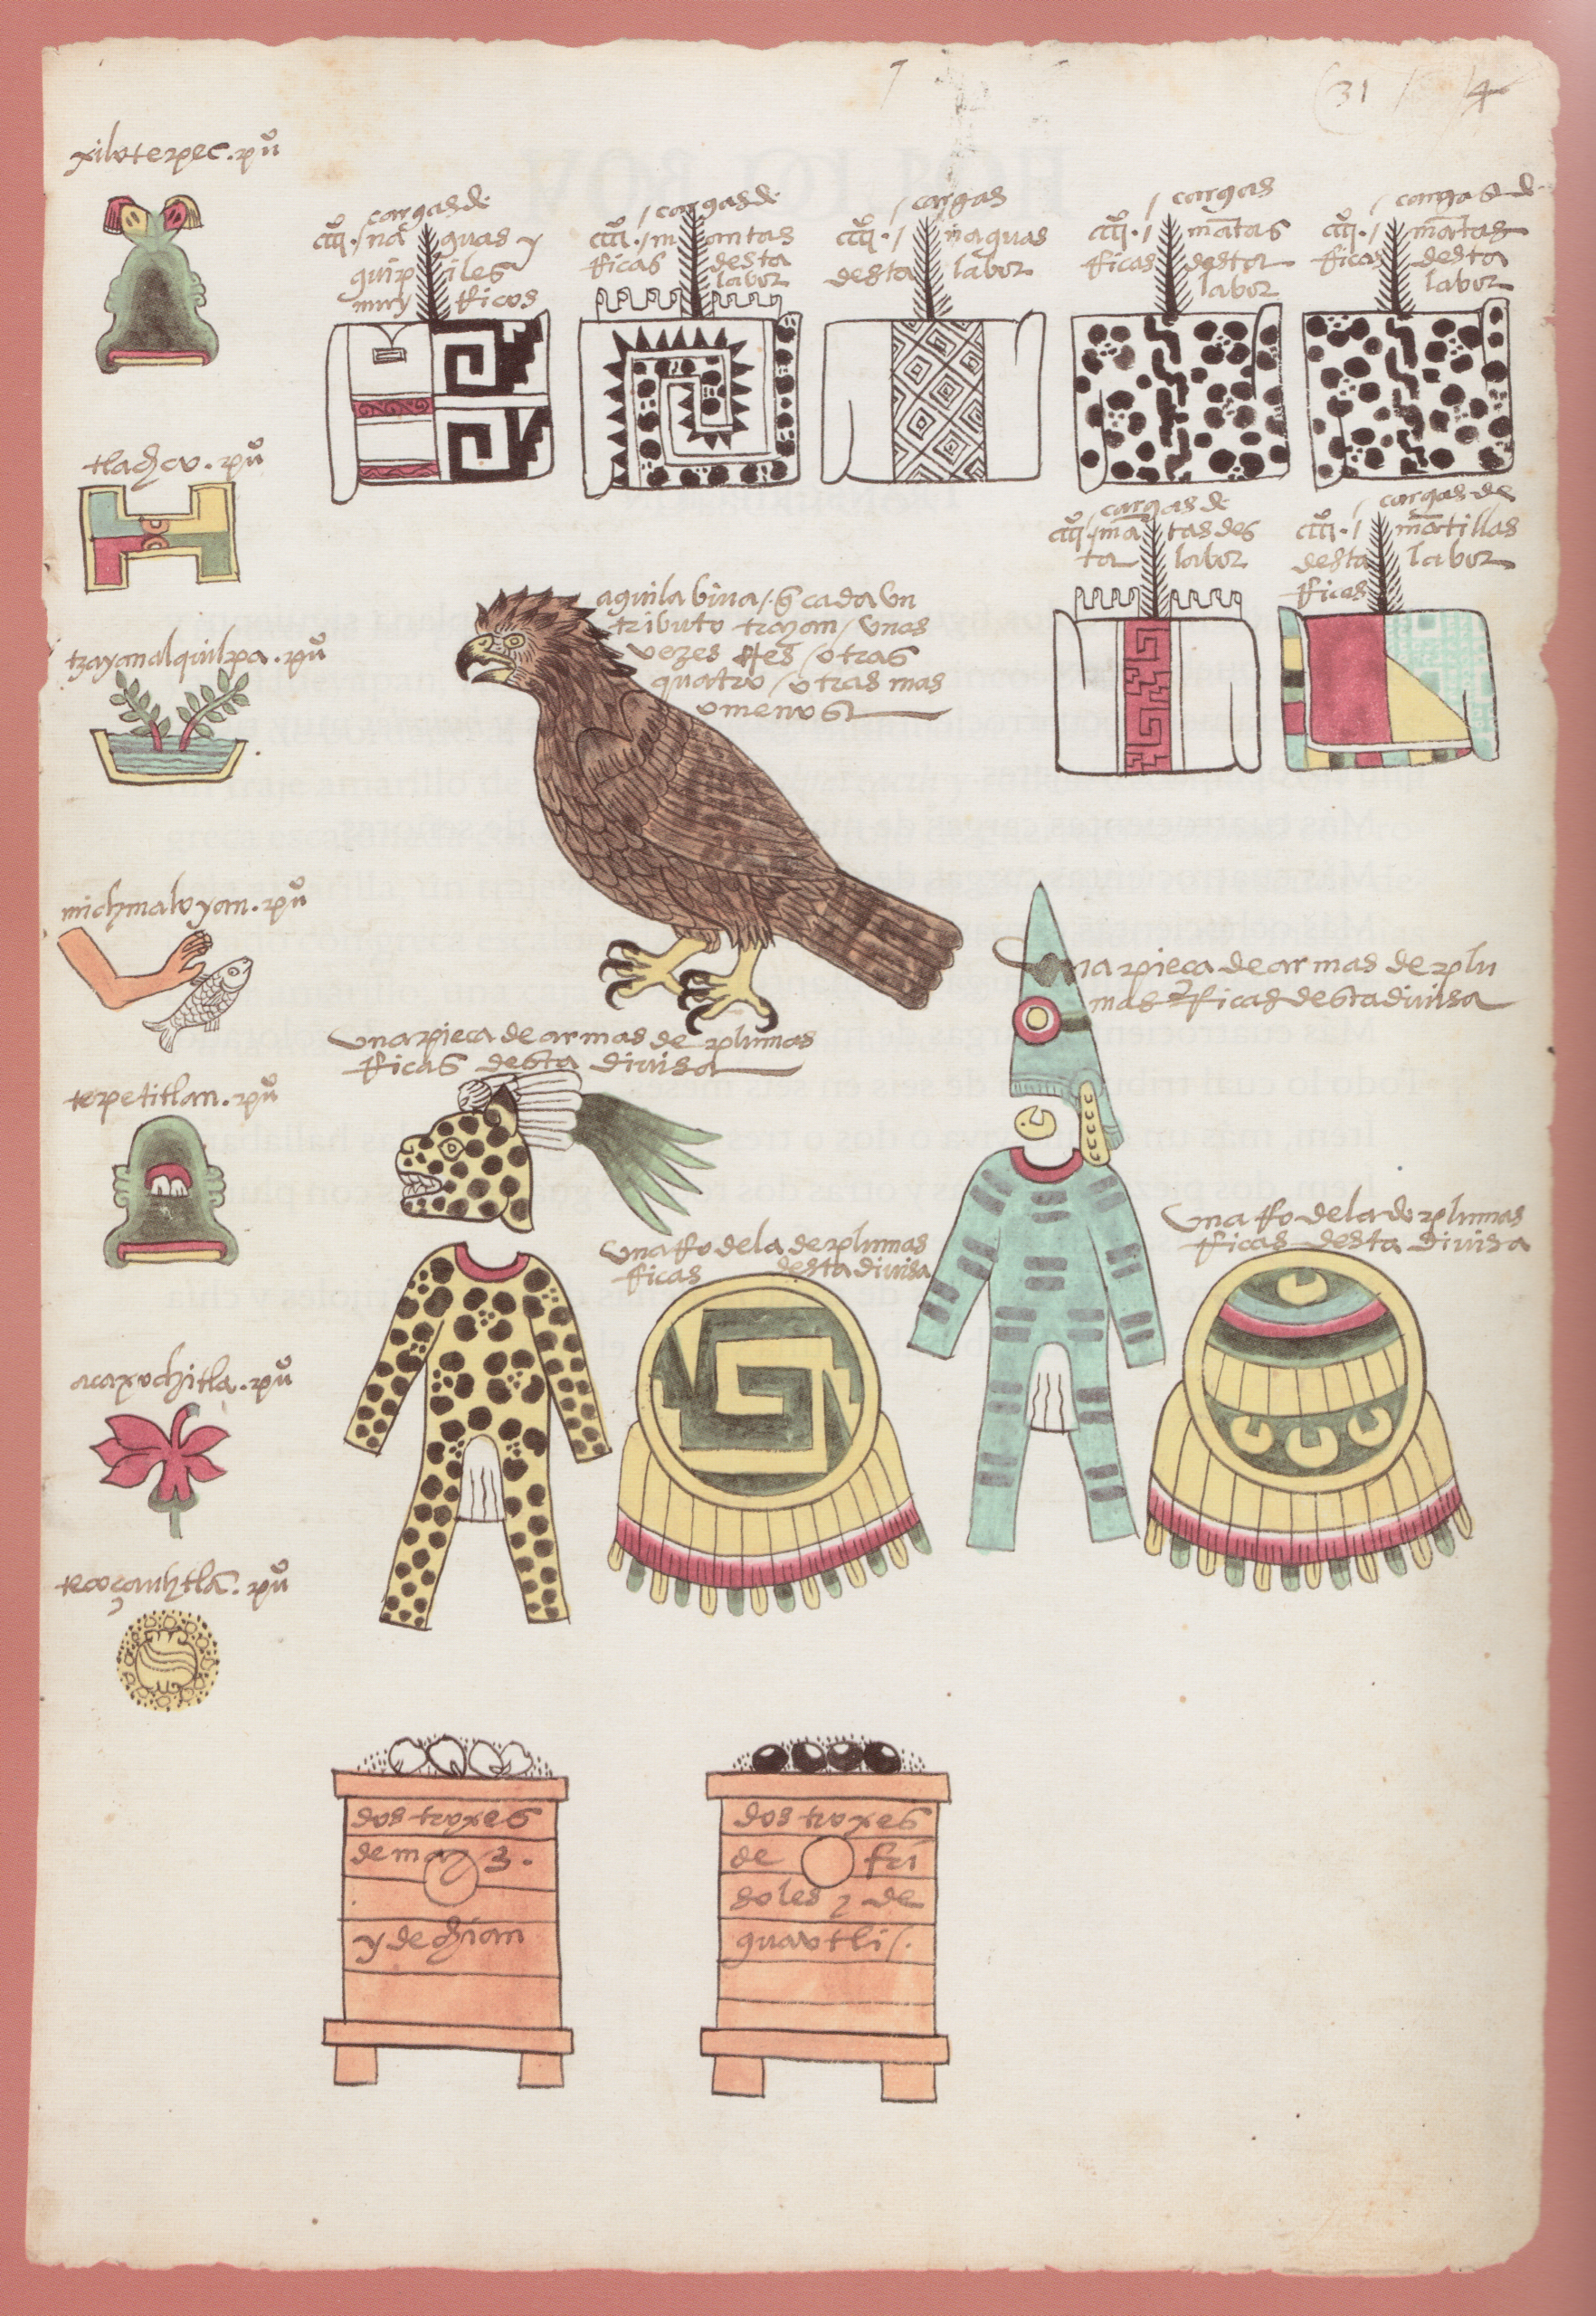 31
4
xilotepec. pu͞o
tlachco. pu͞o
tzayanalquilpa. pu͞o
michmaloyan. pu͞o
tepetitlan. pu͞o
acaxochitla. pu͞o
tecoçauhtla͞. pu͞o
cargas de
cccc͞o. / na guas y
guipiles
muy rricos
/ cargas de
cccc͞o. / mantas
rricas desta
labor
/ cargas
cccc͞o. / naguas
desta labor
/ cargas
cccc͞o. / ma͞tas
rricas desta
labor
/ cargas de
cccc͞o. / ma͞tas
rricas desta
labor
cargas de
cccc͞o. / ma͞tas des
ta labor
cargas de
cccc͞o. / ma͞tillas
desta labor
rricas
aguila biva /. q͞ cada un
tributo trayan / unas
vezes tres / otras
quatro / otras mas
o menos
una pieça de armas de plu
mas rricas desta divisa
una pieça de armas de plumas
rricas desta divisa
una rrodela de plumas
rricas desta divisa
una rrodela de plumas
rricas desta divisa
dos troxes
de mayz.
y de chian
dos troxes
de fri
soles y de
guavtli /.